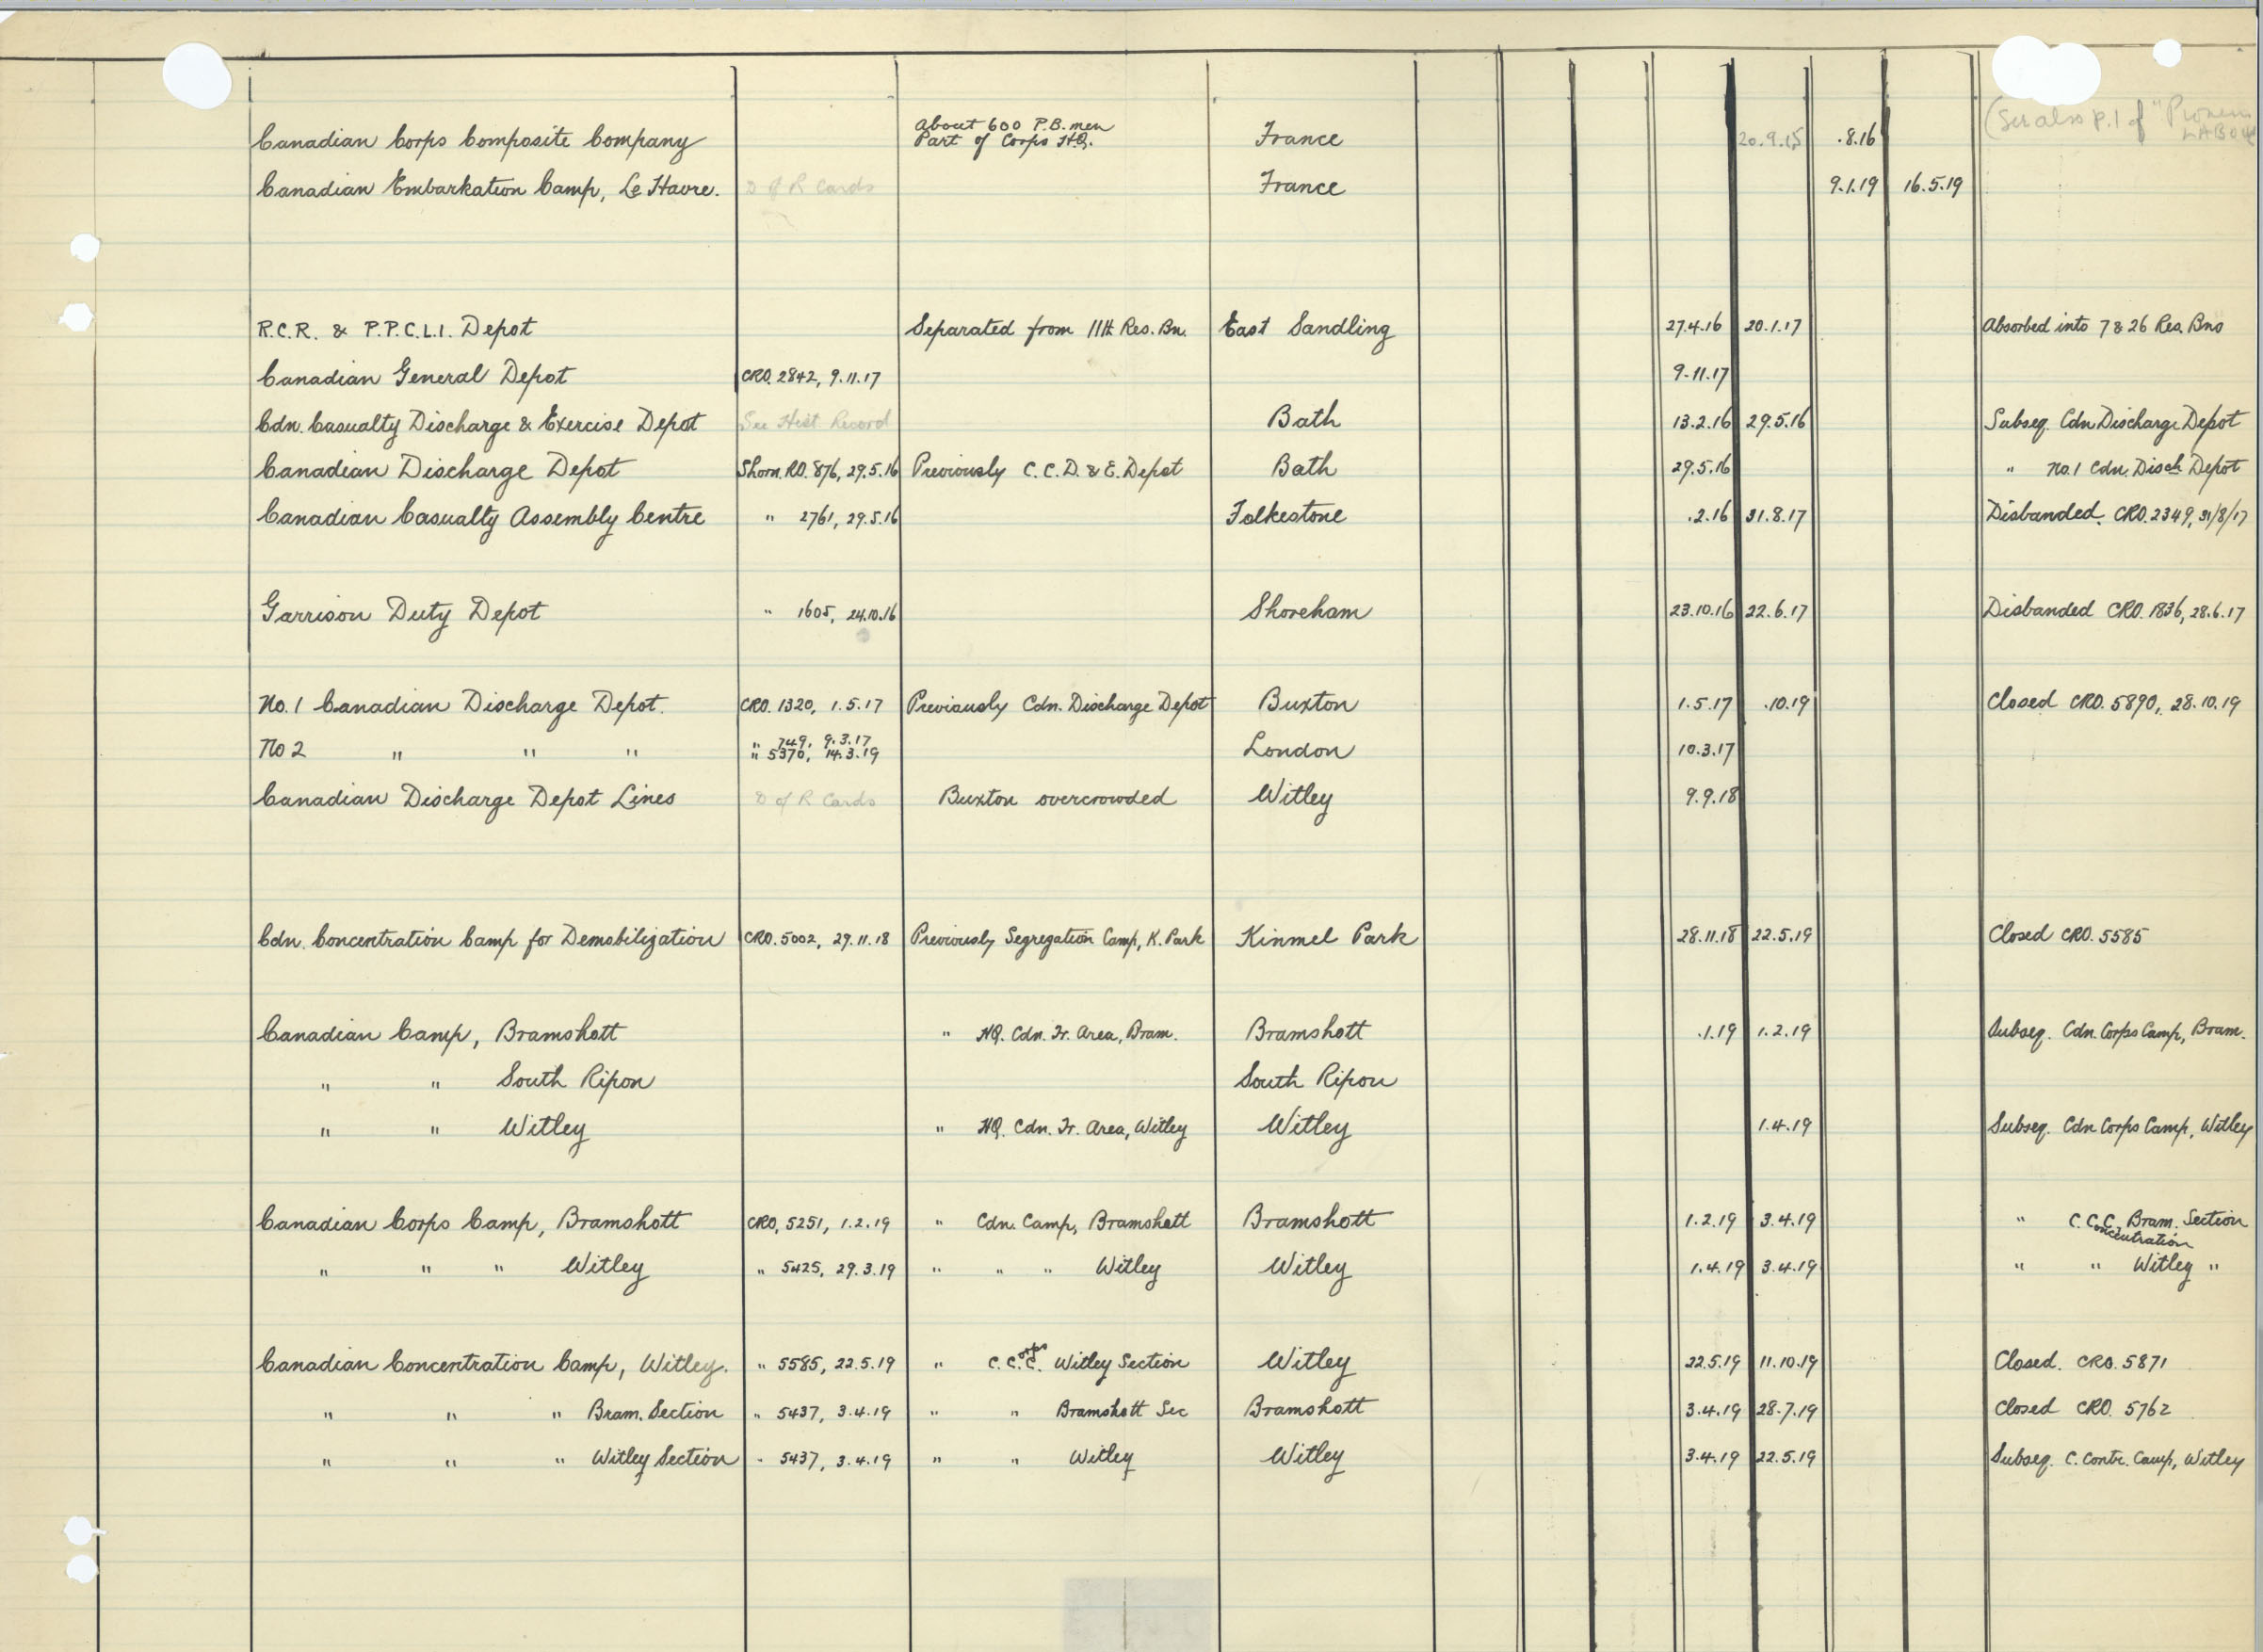 (See also p.1 of "Pioneers
LABOUR
Canadian Corps Composite Company About 600 P.B. men France 20.9.15 .8.16
Part of Corps HQ.
Canadian Embarkation Camp, Le Havre. D of R Cards France 9.1.19 16.5.19
R.C.R. & P.P.C.L.I. Depot Separated from 11th Res. Bn. East Sandling 27.4.16 20.1.17 Absorbed into 7 & 26 Res. Bns
Canadian General Depot CRO. 2842, 9.11.17 9.11.17
Cdn. Casualty Discharge & Exercise Depot See Hist Record Bath 13.2.16 29.5.16 Subseq. Cdn Discharge Depot
Canadian Discharge Depot Shorn. RO. 876, 29.5.16 Previously C.C.D. & E. Depot Bath 29.5.16 " No.1 Cdn. Disch Depot
Canadian Casualty Assembly Centre " 2761, 29.5.16 Folkestone .2.16 31.8.17 Disbanded. CRO. 2349, 31/8/17
Garrison Duty Depot " 1605, 24.10.16 Shoreham 23.10.16 22.6.17 Disbanded CRO. 1836, 28.6.17
No. 1 Canadian Discharge Depot. CRO. 1320, 1.5.17 Previously Cdn. Discharge Depot Buxton 1.5.17 .10.19 Closed CRO. 5890, 28.10.19
No 2 " " " " 749, 9.3.17 London 10.3.17
" 5370, 14.3.19
Canadian Discharge Depot Lines D of R Cards Buxton overcrowded Witley 9.9.18
Cdn. Concentration Camp for Demobilization CRO. 5002, 29.11.18 Previously Segregation Camp, K. Park Kinmel Park 28.11.18 22.5.19 Closed CRO. 5585
Canadian Camp, Bramshott " HQ. Cdn. Tr. Area, Bram. Bramshott .1.19 1.2.19 Subseq. Cdn. Corps Camp, Bram.
" " South Ripon South Ripon
" " Witley " HQ. Cdn. Tr. Area, Witley Witley 1.4.19 Subseq. Cdn Corps Camp, Witley
Canadian Corps Camp, Bramshott CRO, 5251, 1.2.19 " Cdn. Camp, Bramshott Bramshott 1.2.19 3.4.19 " C. C.C. Bram. Section
oncentration
" " " Witley " 5425, 29.3.19 " " " Witley Witley 1.4.19 3.4.19 " " Witley "
Canadian Concentration Camp, Witley. " 5585, 22.5.19 " C.Corps C. Witley Section Witley 22.5.19 11.10.19 Closed. CRO. 5871
" " " Bram. Section " 5437, 3.4.19 " " Bramshott Sec Bramshott 3.4.19 28.7.19 Closed CRO. 5762
" " " Witley Section " 5437, 3.4.19 " " Witley Witley 3.4.19 22.5.19 Subseq. C. Contr. Camp, Witley